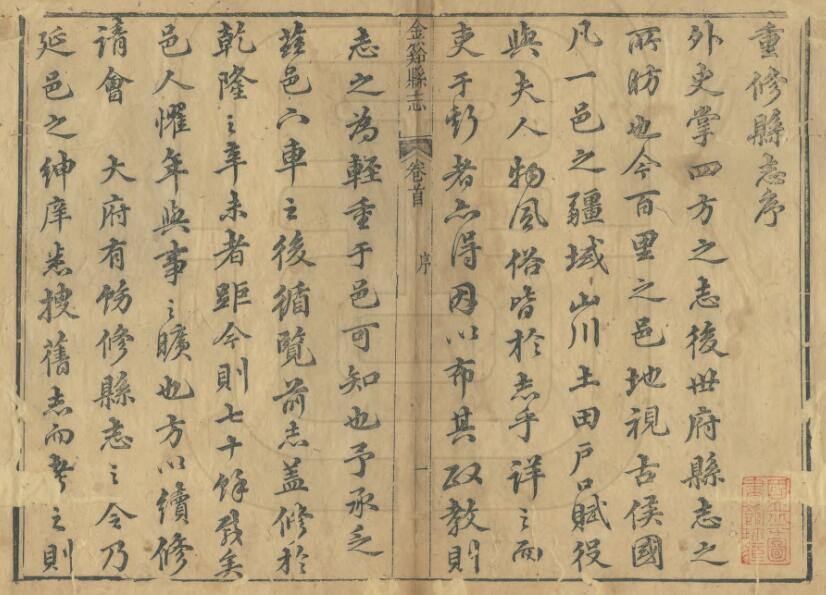 重修縣志序
外史掌四方之志後世府縣志之
所昉也今百里之邑地視古侯國
凡一邑之疆域山川土田戶口賦役
與夫人物風俗皆於志乎詳之而
吏于斯者亦得因以布其政教則
金谿縣志 卷首 序 一
志之為輕重于邑可知也予承乏
茲邑下車之後循覽前志蓋修於
乾隆之辛未者距今則七十餘年矣
邑人懼年與事之曠也方以續修
請會 大府有飭修縣志之令乃
延邑之紳庠悉搜舊志而考之則